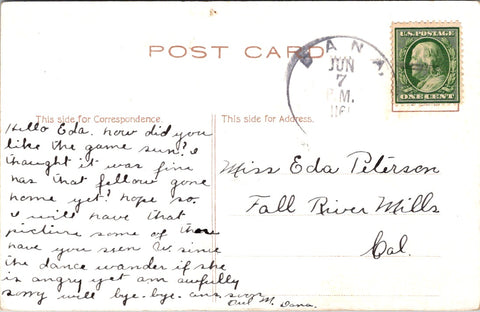 POST CARD
DANA,
JUN
7
P.M.
U.S. POSTAGE
ONE CENT
This side for Correspondence.
This side for Address.
Hello Eda. how did you
like the game sun? I
thought it was fine
has that fellow gone
home yet? hope so.
I will have that
picture some of these
have you seen W. since
the dance wander if she
is angry yet am awfully
sorry will bye-bye. ans soon
M. Dana.
Miss Eda Peterson
Fall River Mills
Cal.